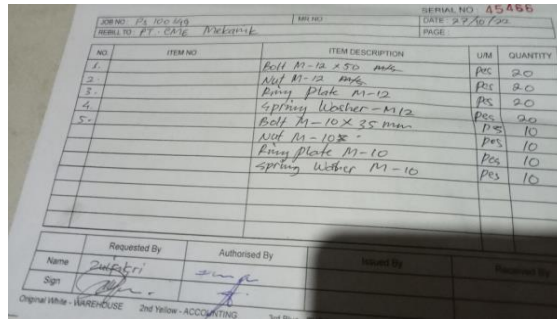 SERIAL NO : 45466
JOB NO : Ps 100499 MR NO : DATE : 27/10/22
REBILL TO : PT. CME Mekanik PAGE :
NO. ITEM NO ITEM DESCRIPTION U/M QUANTITY
1. Bolt M-12 x 50 pcs 20
2. Nut M-12 pcs 20
3. Ring Plate M-12 pcs 20
4. Spring Washer - M12 pcs 20
5. Bolt M-10 x 35 mm pcs 10
Nut M-10 pcs 10
Ring plate M-10 pcs 10
Spring Washer M-10 pcs 10
Requested By Authorised By Issued By Received By
Name
Sign
Original White - WAREHOUSE 2nd Yellow - ACCOUNTING